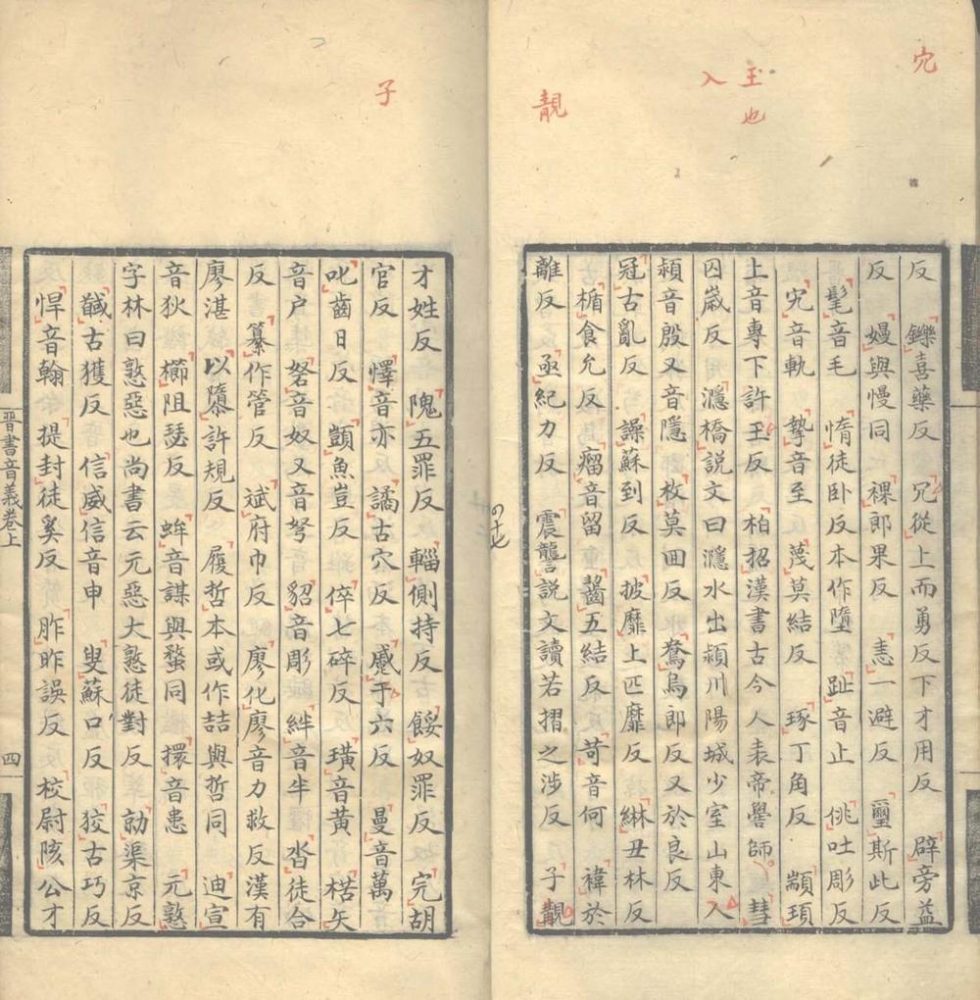 宄
玉也
入
靚
反 鑠喜藥反 冗從上而勇反下才用反 辟旁益
反 嫚與慢同 裸郎果反 恚一避反 璽斯此反
髦音毛 惰徒卧反本作墮 趾音止 佻吐彫反
宄音軌 摯音至 蔑莫結反 琢丁角反 顓頊
上音專下許玉反 柏招漢書古今人表帝嚳師 彗
囚歲反 濦橋說文曰濦水出潁川陽城少室山東入
潁音殷又音隱 枚莫回反 鴦烏郎反又於良反
冠古亂反 譟蘇到反 披靡上匹靡反 綝丑林反
楯食允反 瘤音留 齧五結反 苛音何 褘於
離反 亟紀力反 震讋說文讀若摺之涉反 子靚
四十七
子
才姓反 隗五罪反 輜側持反 餒奴罪反 完胡
官反 懌音亦 譎古穴反 蹙于六反 曼音萬
叱齒日反 顗魚豈反 倅七碎反 璜音黃 楛矢
音户 砮音奴又音弩 貂音彫 絆音半 沓徒合
反 纂作管反 斌府巾反 廖化廖音力救反漢有
廖湛 以隳許規反 履哲本或作喆與哲同 迪宣
音狄 櫛阻瑟反 蛑音謀與蝥同 擐音患 元憝
字林曰憝惡也尚書云元惡大憝徒對反 勍渠京反
馘古獲反 信威信音申 叟蘇口反 狡古巧反
悍音翰 提封徒奚反 胙昨誤反 校尉陔公才
晉書音義卷上
四